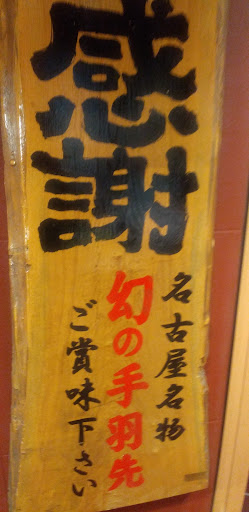 感謝
名古屋名物
幻の手羽先
ご賞味下さい